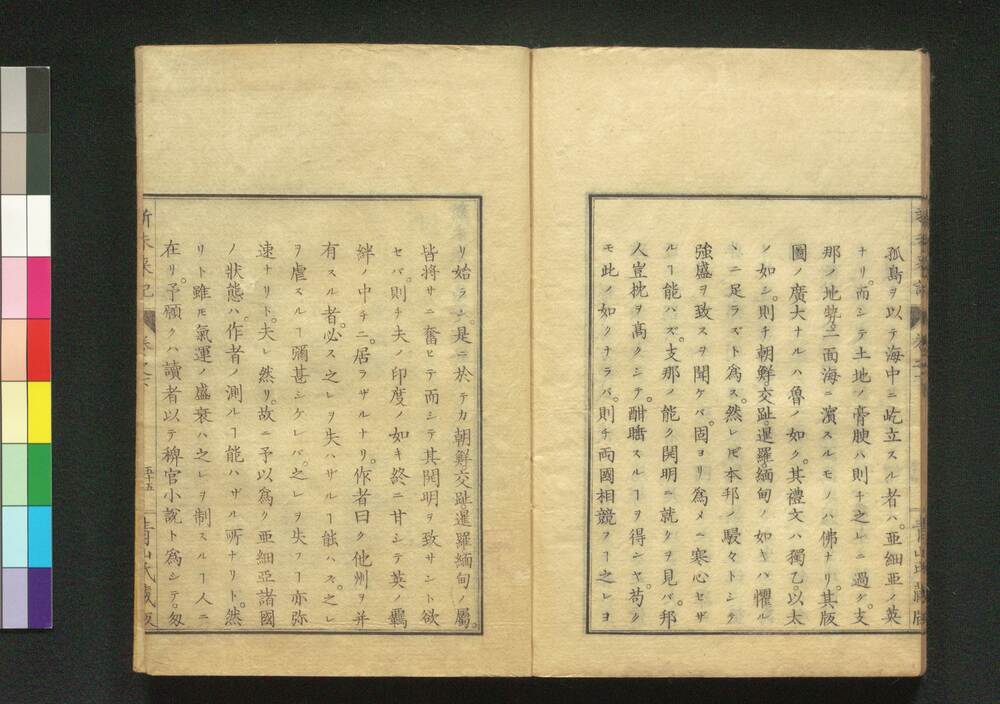 孤島ヲ以テ海中ニ屹立スル者ハ。亜細亜ノ英
ナリ。而シテ土地ノ膏腴ハ則チ之レニ過ク。支
那ノ地勢三面海ニ濱スルモノハ佛ナリ。其版
圖ノ廣大ナルハ魯ノ如ク。其禮文ハ獨乙。以太
ノ如シ。則チ朝鮮交趾。暹羅。緬甸ノ如キハ懼ル
ヽニ足ラズト為ス。然レ𪜈本邦ノ駸々トシテ
強盛ヲ致スヲ聞ケバ。固ヨリ為メニ寒心セザ
ルヿ能ハズ。支那ノ能ク開明ニ就クヲ見バ。邦
人豈枕ヲ高クシテ。酣睡スルヿヲ得ンヤ。苟ク
モ此ノ如クナラバ。則チ両國相競フヿ之レヨ
リ始ラン。是ニ於テカ朝鮮交趾暹羅緬甸ノ屬。
皆将サニ奮ヒテ而シテ其開明ヲ致サント欲
セバ。則チ夫ノ印度ノ如キ終ニ甘シテ英ノ羈
絆ノ中チニ。居ラザルナリ。作者曰ク他州ヲ并
有スル者。必ス之レヲ失ハザルヿ能ハス。之レ
ヲ虐スルヿ彌甚シケレバ。之レヲ失フヿ亦弥
速ナリト。夫レ然リ。故ニ予以為ク亜細亜諸國
ノ狀態ハ。作者ノ測ルヿ能ハザル所ナリト。然
リト雖モ氣運ノ盛衰ハ之レヲ制スルヿ人ニ
在リ。予願クハ讀者以テ稗官小説ト為シテ。匆
新未来記 卷之下 五十五 青山氏藏版